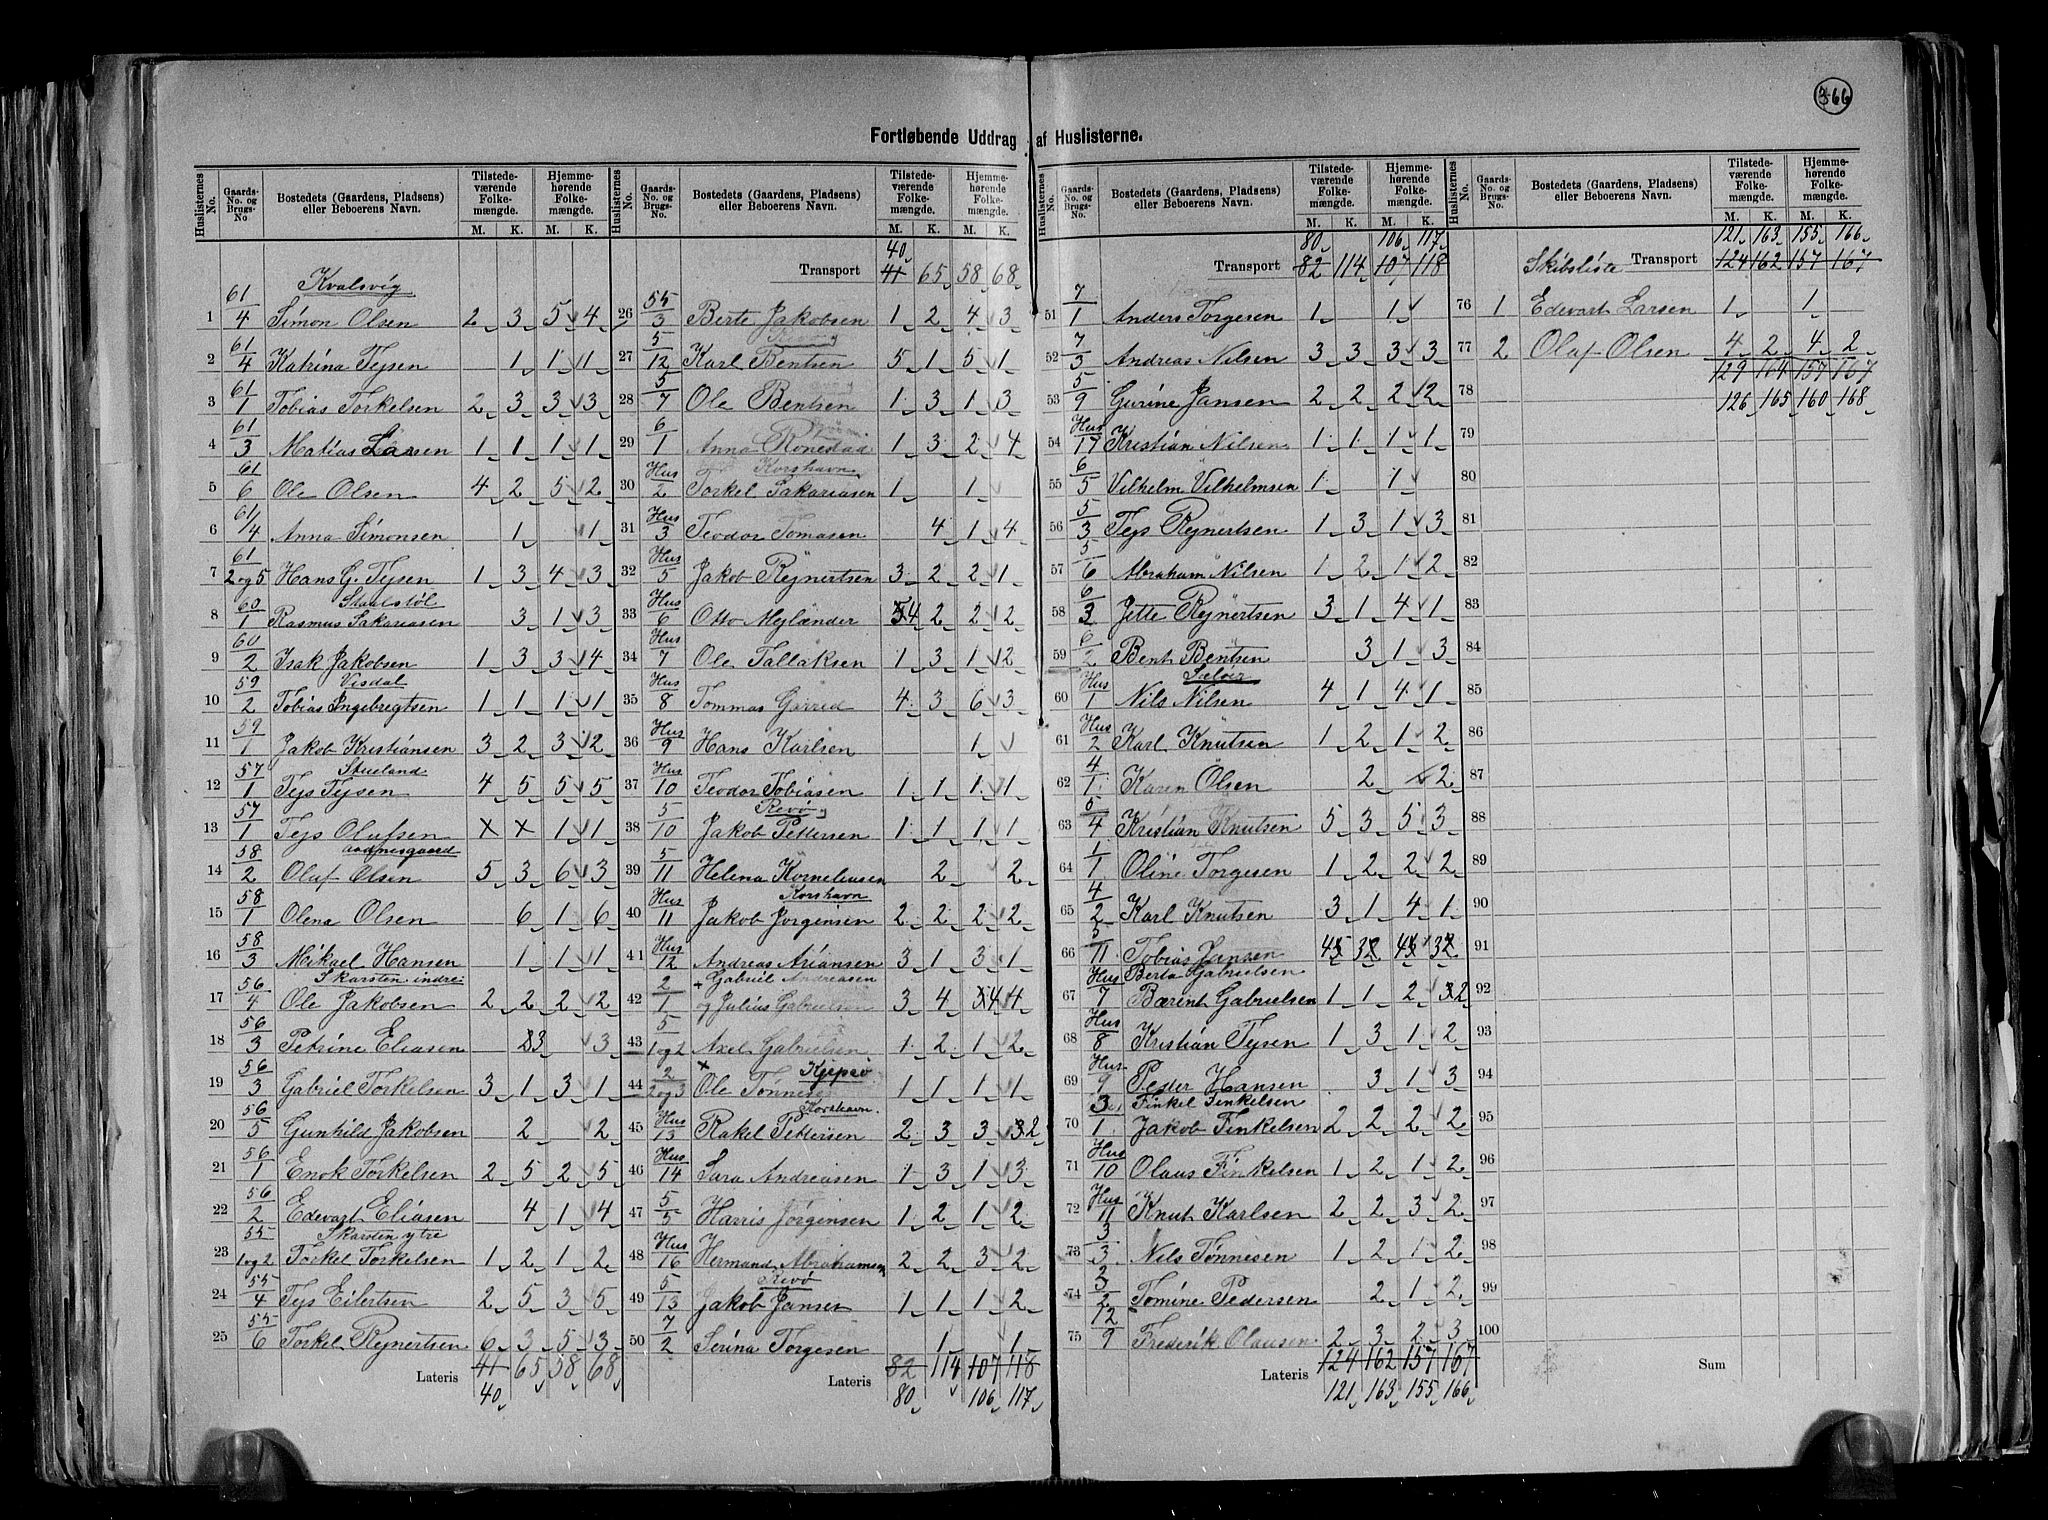 366
Fortløbende Uddrag af Huslisterne.
Huslisternes No. Gaards-No. og Brugs-No Bostedets (Gaardens, Pladsens) eller Beboerens Navn. Tilstedeværende Folkemængde. M. K. Hjemmehørende Folkemængde. M. K.
Kvalsvig
1 61/4 Simon Olsen 2 3 5 4
2 61/4 Katrina Tejsen 1 1 1
3 61/1 Tobias Torkelsen 2 3 3 3
4 61/3 Matias Larsen 1 1 1 1
5 61/6 Ole Olsen 4 2 5 2
6 61/4 Anna Simonsen 1 1
7 61/2 og 5 Hans G. Tejsen 1 3 4 3
Staalstøl
8 60/1 Rasmus Sakariasen 3 1 3
9 60/2 Isak Jakobsen 1 3 3 4
Visdal
10 59/2 Tobias Ingebregtsen 1 1 1 1
11 59/1 Jakob Kristiansen 3 2 3 2
Stueland
12 57/1 Tejs Tejsen 4 5 5 5
13 57/1 Tejs Olufsen x x 1 1
aadnesgaard
14 58/2 Oluf Olsen 5 3 6 3
15 58/1 Olena Olsen 6 1 6
16 58/3 Mikael Hansen 1 1 1
Skarsten indre
17 56/4 Ole Jakobsen 2 2 2 2
18 56/3 Petrine Eliasen 3 3
19 56/3 Gabriel Torkelsen 3 1 3 1
20 56/5 Gunhild Jakobsen 2 2
21 56/1 Enok Torkelsen 2 5 2 5
22 56/2 Edevart Eliasen 4 1 4
Skarsten ytre
23 55/1 og 2 Torkel Torkelsen 1 2 1 2
24 55/4 Tejs Eilertsen 2 5 3 5
25 55/6 Torkel Rejnertsen 6 3 5 3
Lateris 41 65 58 68
40
Huslisternes No. Gaards-No. og Brugs-No. Bostedets (Gaardens, Pladsens) eller Beboerens Navn. Tilstedeværende Folkemængde. M. K. Hjemmehørende Folkemængde. M. K.
40
Transport 41 65 58 68
26 55/3 Berte Jakobsen 1 2 4 3
27 5/12 Karl Bentsen 5 1 5 1
28 5/7 Ole Bentsen 1 3 1 3
29 6/1 Anna Rönestad 1 3 2 4
Korshavn
30 Hus/2 Torkel Sakariasen 1 1
31 Hus/3 Teodor Tomasen 4 1 4
32 Hus/5 Jakob Rejnertsen 3 2 2 1
33 Hus/6 Otto Mejlænder 4 2 2 2
34 Hus/7 Ole Tallaksen 1 3 1 2
35 Hus/8 Tommas Garrid 4 3 6 3
36 Hus/9 Hans Karlsen 1
37 Hus/10 Teodor Tobiasen 1 1 1 1
Revø
38 5/10 Jakob Pettersen 1 1 1 1
39 5/11 Helena Korneliusen 2 2
Korshavn
40 Hus/11 Jakob Jorgensen 2 2 2 2
41 Hus/12 Andreas Ariansen 3 1 3 1
Gabriel Andreasen
42 2/1 og Julius Gabrielsen 3 4 4 4
43 5/1 og 2 Axel Gabrielsen 1 2 1 2
Kjepsø
44 2/2 og 3 Ole Tønnes 1 1 1 1
Korshavn
45 Hus/13 Rakel Pettersen 2 3 3 2
46 Hus/14 Sara Andreasen 1 3 1 3
47 5/5 Harris Jørgensen 1 2 1 2
48 Hus/16 Hermand Abrahamsen 2 2 3 2
Revø
49 5/13 Jakob Jansen 1 1 1 2
50 7/2 Serina Torgesen 1 1
Lateris 82 114 107 118
80 106 117
Huslisternes No. Gaards-No. og Brugs-No. Bostedets (Gaardens, Pladsens) eller Beboerens Navn. Tilstedeværende Folkemængde. M. K. Hjemmehørende Folkemængde. M. K.
80 106 117
Transport 82 114 107 118
51 7/1 Anders Torgesen 1 1
52 7/3 Andreas Nilsen 3 3 3 3
53 5/9 Gurine Jansen 2 2 2 2
54 Hus/17 Kristian Nilsen 1 1 1 1
55 6/5 Vilhelm Vilhelmsen 1 1
56 5/3 Tejs Rejnertsen 1 3 1 3
57 5/6 Abraham Nilsen 1 2 1 2
58 6/3 Jette Rejnertsen 3 1 4 1
59 6/2 Bent Bentsen 3 1 3
Sælør
60 Hus/1 Nils Nilsen 4 1 4 1
61 Hus/2 Karl Knutsen 1 2 1 2
62 4/1 Karen Olsen 2 2
63 5/4 Kristian Knutsen 5 3 5 3
64 1/1 Oline Torgesen 1 2 2 2
65 4/2 Karl Knutsen 3 1 4 1
66 5/11 Tobias Jansen
Berta Gabrielsen
67 Hus/7 Bærent Gabrielsen 1 1 2 2
68 Hus/8 Kristian Tejsen 1 3 1 2
69 Hus/9 Peder Hansen 3 1 3
Finkel Finkelsen
70 3/1 Jakob Finkelsen 2 2 2 2
71 Hus/10 Olaus Finkelsen 1 2 1 2
72 Hus/11 Knut Karlsen 2 2 3 2
73 3/3 Nils Tønnesen 1 2 1 2
74 3/2 Tomine Pedersen 2 1 2
75 12/9 Frederik Olausen 2 3 2 3
Lateris 124 162 157 167
121 163 155 166
Huslisternes No. Gaards-No. og Brugs-No. Bostedets (Gaardens, Pladsens) eller Beboerens Navn. Tilstedeværende Folkemængde. M. K. Hjemmehørende Folkemængde. M. K.
121 163 155 166
Skibsliste Transport 124 162 157 167
76 1 Edevart Larsen 1 1
77 2 Oluf Olsen 4 2 4 2
129 164 157 167
78 126 165 160 168
79
80
81
82
83
84
85
86
87
88
89
90
91
92
93
94
95
96
97
98
99
100
Sum